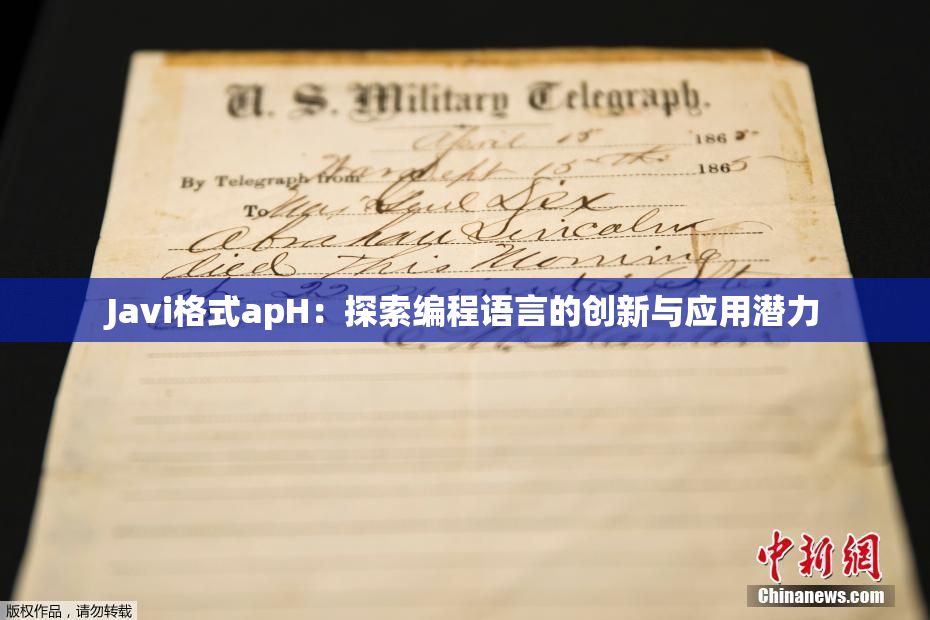 U. S. Military Telegraph.
April 15 1865-
By Telegraph from War Dept 15th 1865
To Maj Genl Dix
Abraham Lincoln
died This Morning
at 22 minutes after
Javi格式apH：探索编程语言的创新与应用潜力
E. M. Stanton
中新网
Chinanews.com
版权作品，请勿转载